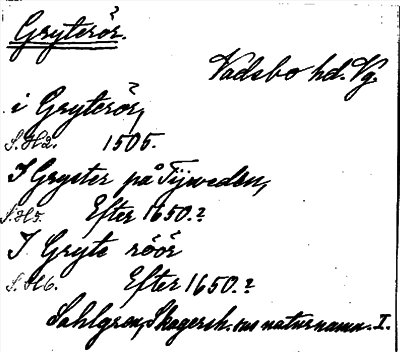 Gryterör.
Vadsbo hd. Vg.
i Gryterör,
S.H2. 1505.
I Gryter på Tijweden,
S.H5. Efter 1650.?
I Gryte röör
S.H6. Efter 1650.?
Sahlgren, Skagersh. sns naturnamn. I.